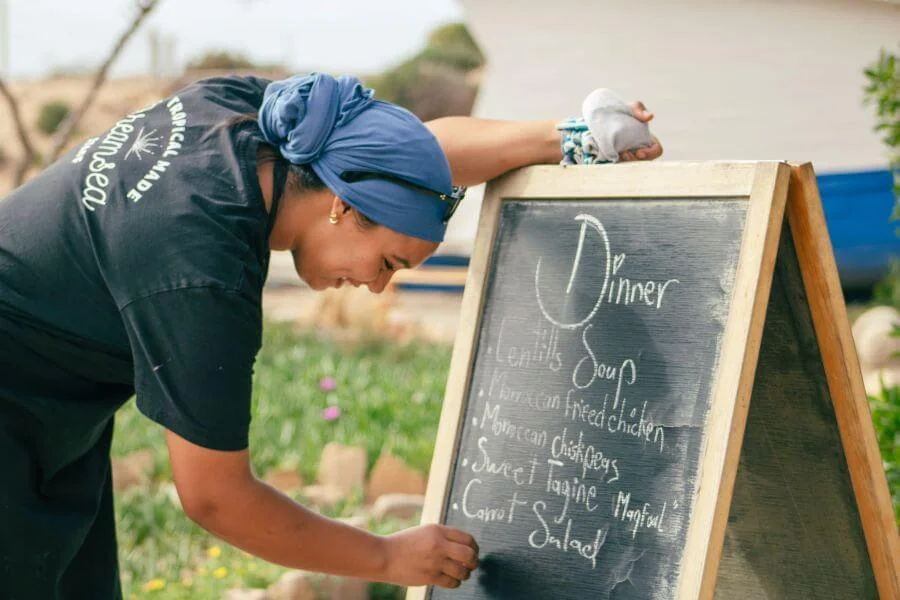 TROPICAL MADE
Dreamsea
Dinner
. Lentills Soup
. Moroccan fried chicken
. Moroccan Chiskpeas
. Sweet Tagine "Manfoal"
. Carrot Salad